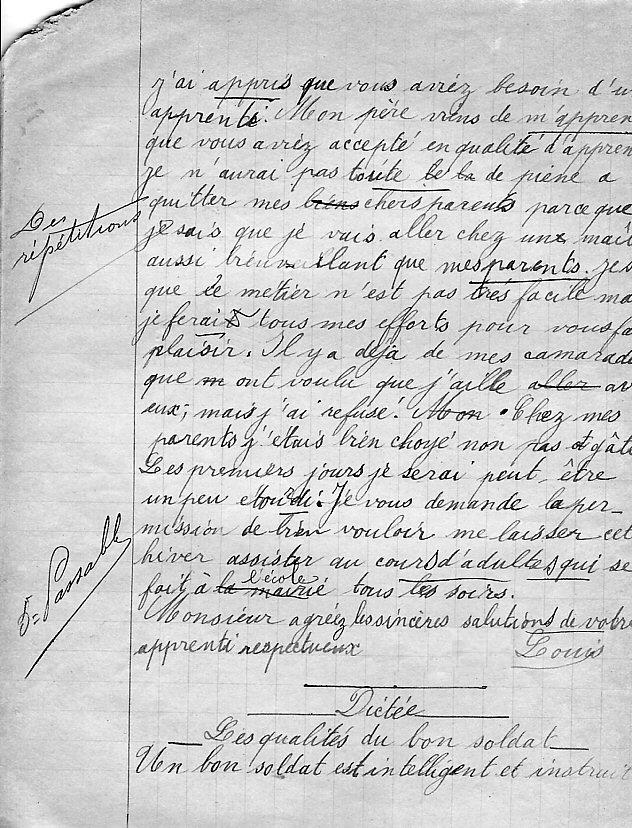 j'ai appris que vous avréz besoin d'u
apprenti. Mon père viens de m'appren
que vous avréz accepté en qualité d'appren
je n'aurai pas toute de piene a
quitter mes biens chers parents parce que
Des répétitions
je sais que je vais aller chez une maît
aussi bienveillant que mes parents. Je s
que le metier n'est pas trés facile ma
je ferais tous mes efforts pour vous fa
plaisir. Il y a déjà de mes camarade
que m ont voulu que j'aille aller av
eux; mais j'ai refusé. Mon Chez mes
parents j'étais bien choyé non pas et gâté
Les premiers jours je serai peut-être
un peu etourdi. Je vous demande la per-
mission de bien vouloir me laisser cet
hiver assister au cours d'adultes qui se
fait à la mairie l'école tous les soirs.
Passable
Monsieur agréez les sincères salutions de votre
apprenti respectueux Louis
Dictée
Les qualités du bon soldat
Un bon soldat est intelligent et instruit